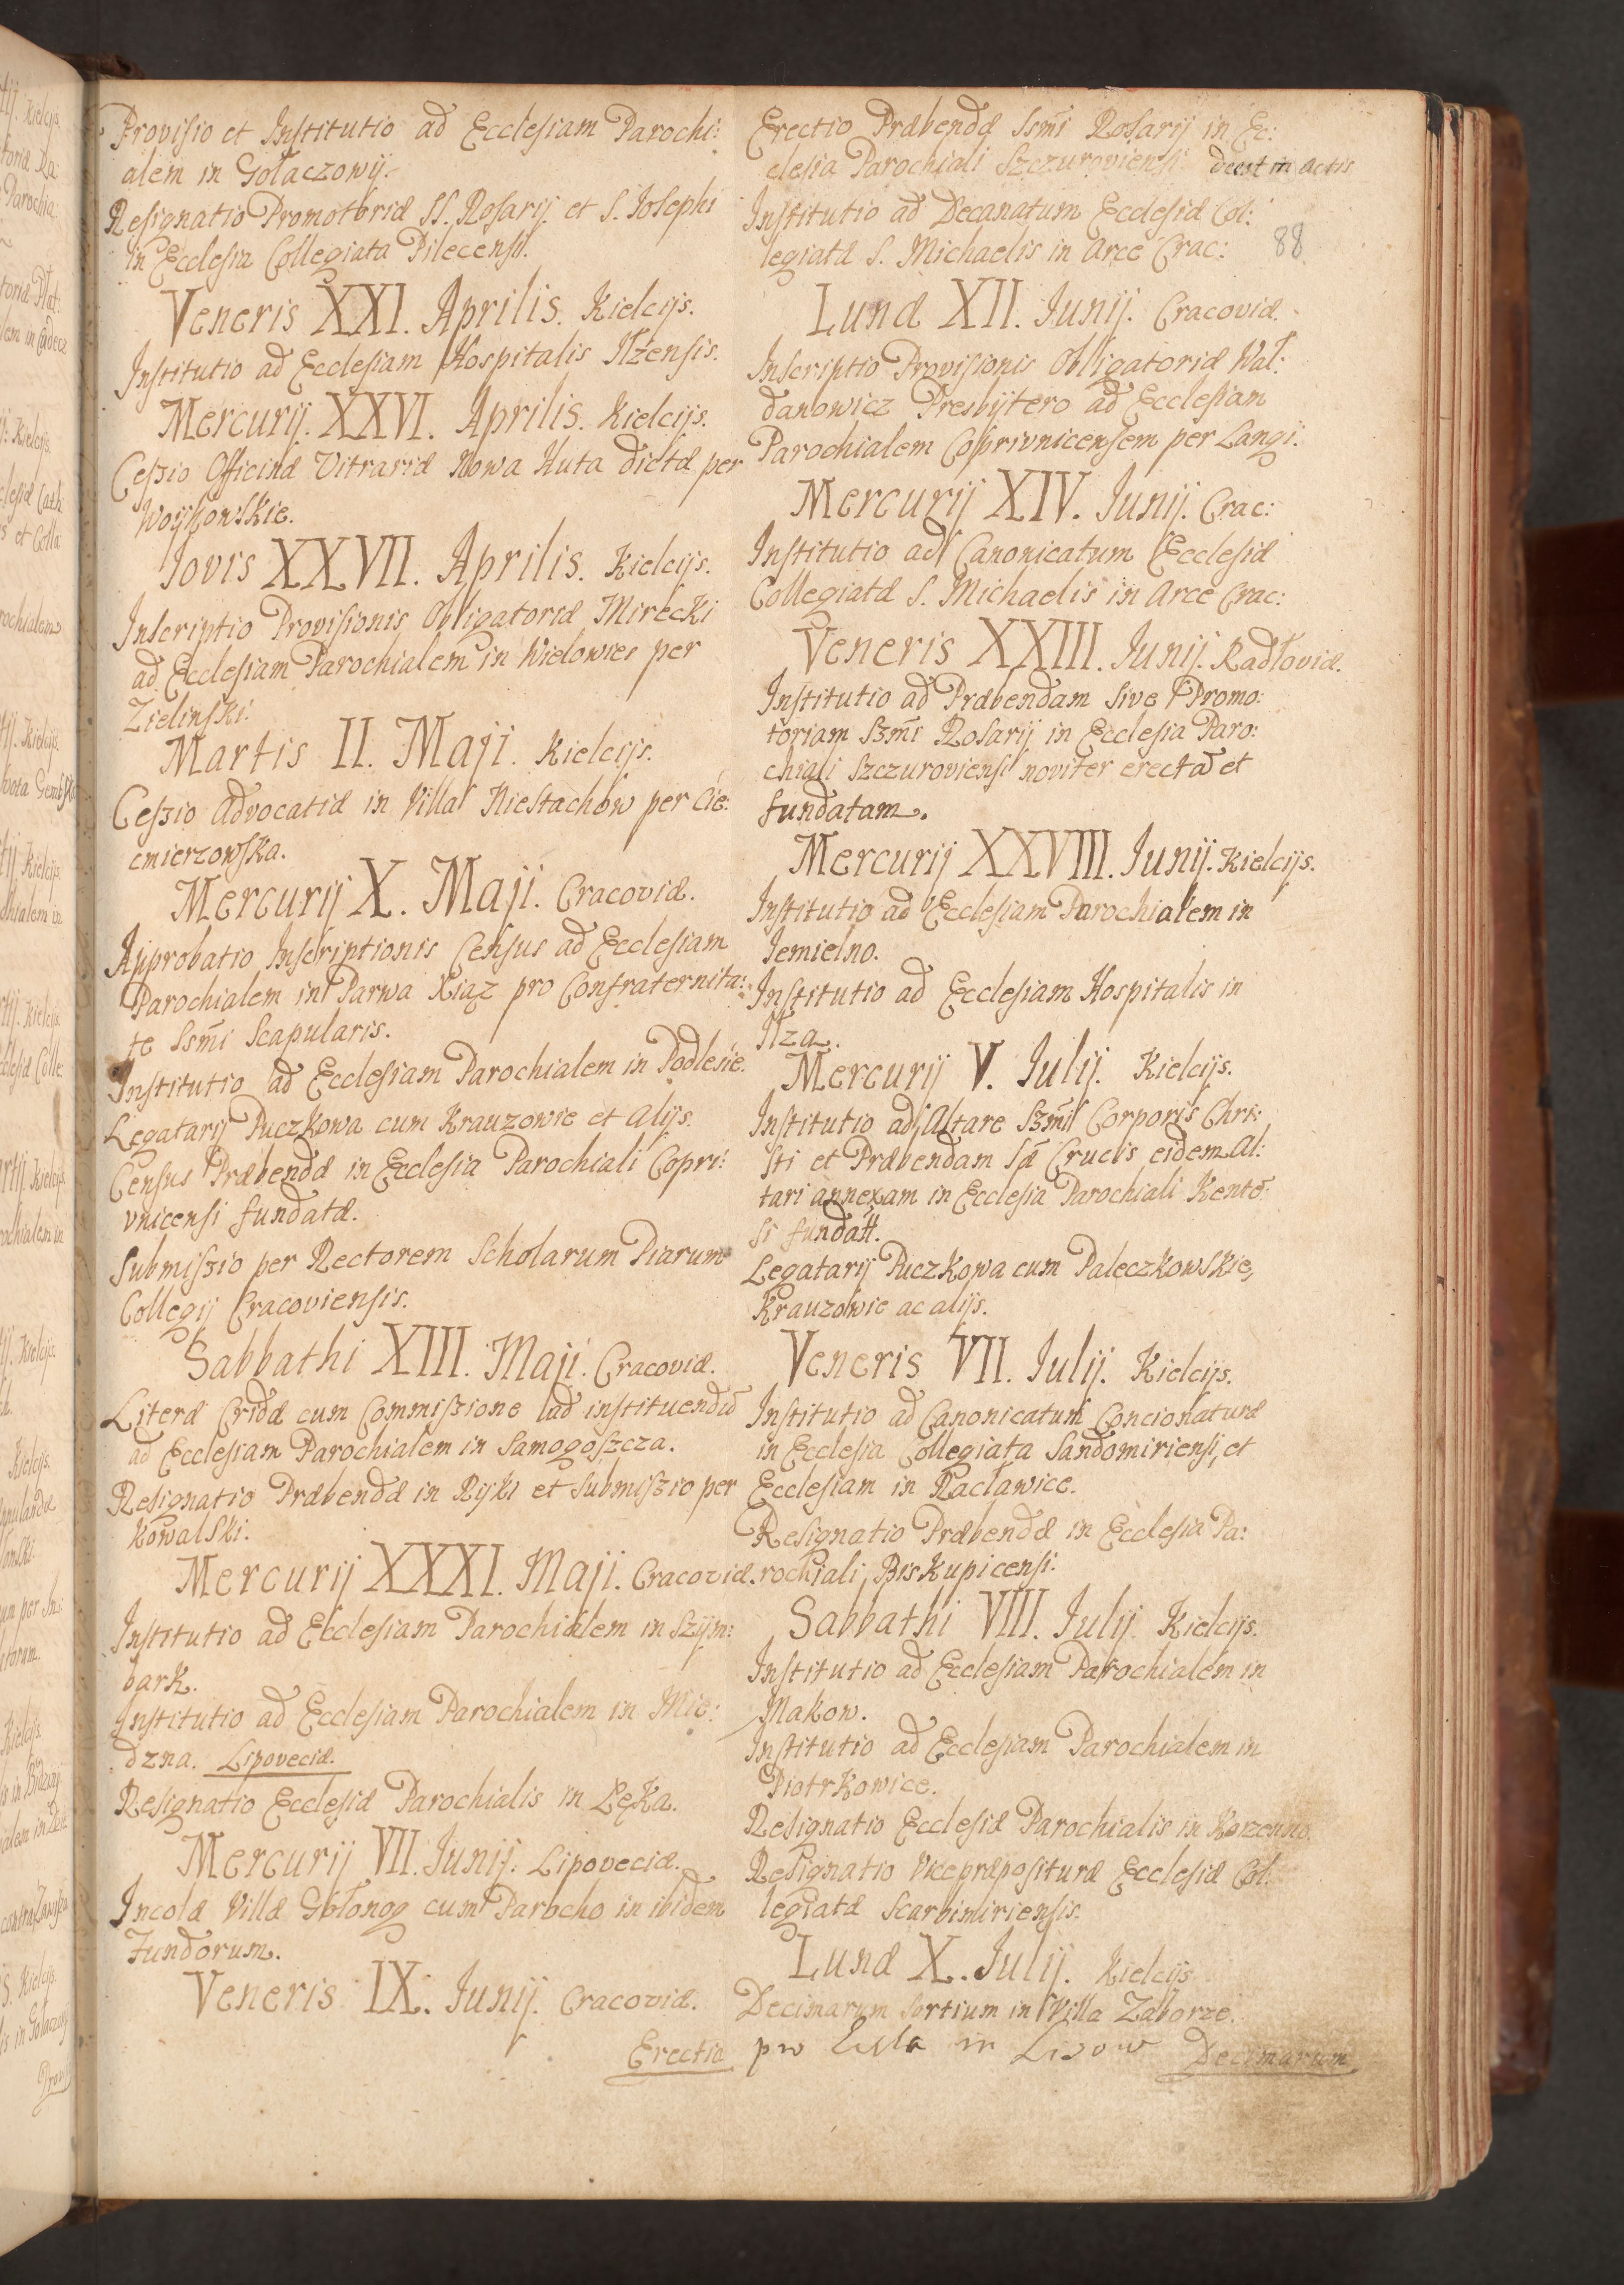 Provisio et Institutio ad Ecclesiam Parochi:
alem in Gołaczowij.
Resignatio Promotoriæ SS. Rosarij et S. Iosephi
in Ecclesia Collegiata Pilecensi.
Veneris XXI. Aprilis. Kielcijs.
Institutio ad Ecclesiam Hospitalis Ilżensis.
Mercurij. XXVI. Aprilis. Kielcijs.
Ceszio Officinæ Vitrariæ Nowa Huta dictæ per
Woijkowskie.
Iovis XXVII. Aprilis. Kielcijs.
Inscriptio Provisionis Obligatoriæ Mirecki
ad Ecclesiam Parochialem in Wielowies per
Zielinski.
Martis II. Maji. Kielcijs.
Ceszio Advocatiæ in Villa Niestachow per Cie:
cmierzowska.
Mercurij X. Maji. Cracoviæ.
Approbatio Inscriptionis Census ad Ecclesiam
Parochialem in Parwa Xiąz pro Confraternita:
te Ssm̃i Scapularis.
Institutio ad Ecclesiam Parochialem in Podlesie.
Legatarij Puczkowa cum Krauzowie et alijs.
Census Præbendæ in Ecclesia Parochiali Copri:
vnicensi fundatæ.
Submiszio per Rectorem Scholarum Piarum
Collegij Cracoviensis.
Sabbathi XIII. Maji. Cracoviæ.
Literæ Cridæ cum Commiszione ad instituendũ
ad Ecclesiam Parochialem in Samogoszcza.
Resignatio Præbendæ in Rijki et submiszio per
Kowalski.
Mercurij XXXI. Maji. Cracoviæ.
Institutio ad Ecclesiam Parochialem in Szijm:
bark.
Institutio ad Ecclesiam Parochialem in Mie:
dzna. Lipoveciæ.
Resignatio Ecclesiæ Parochialis in Lęka.
Mercurij VII. Iunij. Lipoveciæ.
Incolæ Villæ Gołonog cum Parocho in ibidem
Fundorum.
Veneris IX. Iunij. Cracoviæ.
Erectio
Erectio Præbendæ Ssm̃i Rosarij in Ec:
clesia Parochiali Szczuroviensi deest in actis
Institutio ad Decanatum Ecclesiæ Col:
legiatæ S. Michaelis in Arce Crac:
88
Lunæ XII. Iunij. Cracoviæ.
Inscriptio Provisionis Obligatoriæ Wał:
danowicz Presbijtero ad Ecclesiam
Parochialem Coprivnicensem per Langi.
Mercurij XIV. Iunij. Crac:
Institutio ad Canonicatum Ecclesiæ
Collegiatæ S. Michaelis in Arce Crac:
Veneris XXIII. Iunij. Radłoviæ.
Institutio ad Præbendam sive Promo:
toriam Szm̃i Rosarij in Ecclesia Paro:
chiali Szczuroviensi noviter erectã et
fundatam.
Mercurij XXVIII. Iunij. Kielcijs.
Institutio ad Ecclesiam Parochialem in
Iemielno.
Institutio ad Ecclesiam Hospitalis in
Ilza.
Mercurij V. Iulij. Kielcijs.
Institutio ad Altare Szm̃i Corporis Chri:
sti et Præbendam Sæ Crucis eidem Al:
tari annexam in Ecclesia Parochiali Kentẽ:
si fundatt.
Legatarij Puczkowa cum Paleczkowskie,
Krauzowie ac alijs.
Veneris VII. Iulij. Kielcijs.
Institutio ad Canonicatum Concionaturæ
in Ecclesia Collegiata Sandomiriensi, et
Ecclesiam in Racławice.
Resignatio Præbendæ in Ecclesia Pa:
rochiali Biskupicensi.
Sabbathi VIII. Iulij. Kielcijs.
Institutio ad Ecclesiam Parochialem in
Makow.
Institutio ad Ecclesiam Parochialem in
Piotrkowice.
Resignatio Ecclesiæ Parochialis in Korzenno.
Resignatio Vicepræpositura Ecclesiæ Col:
legiatæ Scarbimiriensis.
Lunæ X. Iulij. Kielcijs
Decimarum sortium in Villa Zaborze.
pro Eccla in Lisow Decimarum